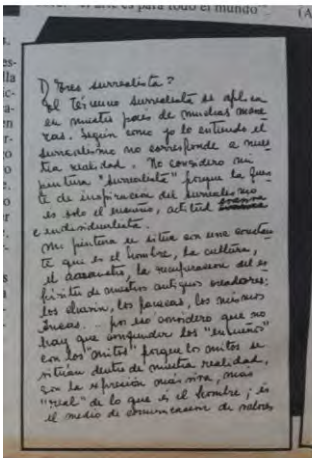 "Il arte es para todo el mundo"
1) Eres surrealista?
El término surrealista se aplica
en nuestro país de muchas mane
ras. Según como yo lo entiendo el
surrealismo no corresponde a nues
tra realidad. No considero mi
pintura "surrealista" porque la fuen
te de inspiración del surrealismo
es solo el ensueño, actitud
e individualista.
Mi pintura se sitúa con una constan
te que es el hombre, la cultura,
el, la recuperación del es
píritu de nuestros antiguos creadores:
los chavin, los paracas, los mismos
Incas... por eso considero que no
hay que confundir los "ensueños"
con los "mitos" porque los mitos se
sitúan dentro de nuestra realidad,
son la expresión más viva, más
"real" de lo que es el hombre; es
el medio de comunicación de valores